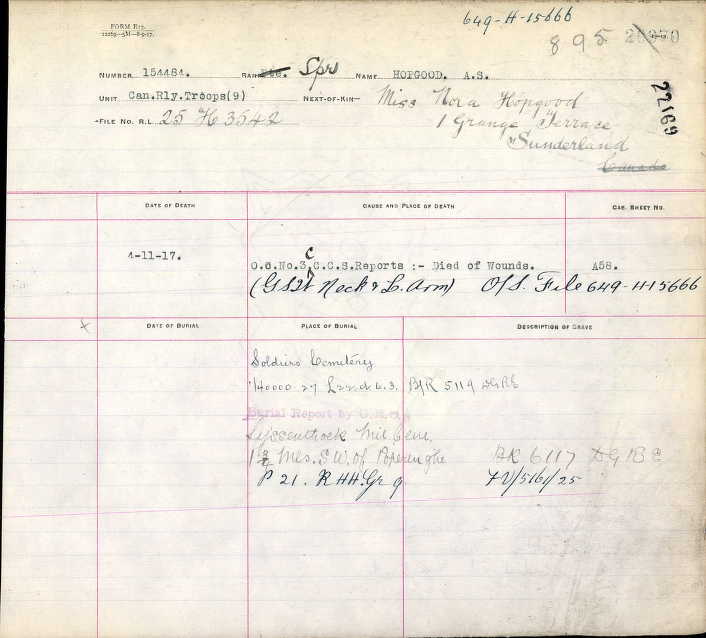 FORM R17.
649-H-15666
895 26370
NUMBER 154484. RANK Pte. Spr NAME HOPGOOD. A.S.
22169
UNIT Can.Rly.Troops(9) NEXT-OF-KIN Miss Nora Hopgood
FILE No. R.L. 25 H 3542 1 Grange Terrace
Sunderland
Canada
DATE OF DEATH CAUSE AND PLACE OF DEATH CAS. SHEET No.
4-11-17. O.C.No.3,C.C.S.Reports :- Died of Wounds. A58.
(GSW Neck & L. Arm) O/S. File 649-H-15666
DATE OF BURIAL PLACE OF BURIAL DESCRIPTION OF GRAVE
x
Soldiers Cemetery
1/40000 27 L22.d.6.3. B/R 5119 DGRE
Burial Report by
Lyssenthoek Mil Cem.
Mls. S.W. of Poperinghe BR 6117
P 21. R HH. Gr 9 FV/5161/25